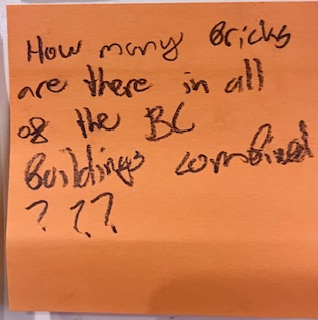 How many Bricks
are there in all
of the BC
Buildings combined
???